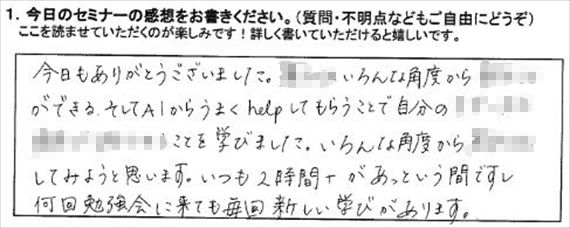 1. 今日のセミナーの感想をお書きください。（質問・不明点などもご自由にどうぞ）
ここを読ませていただくのが楽しみです！詳しく書いていただけると嬉しいです。
今日もありがとうございました。いろんな角度から
ができる、そしてAIからうまくhelpしてもらうことで自分の
ことを学びました。いろんな角度から
してみようと思います。いつも2時間+があっという間ですし
何回勉強会に来ても毎回新しい学びがあります。